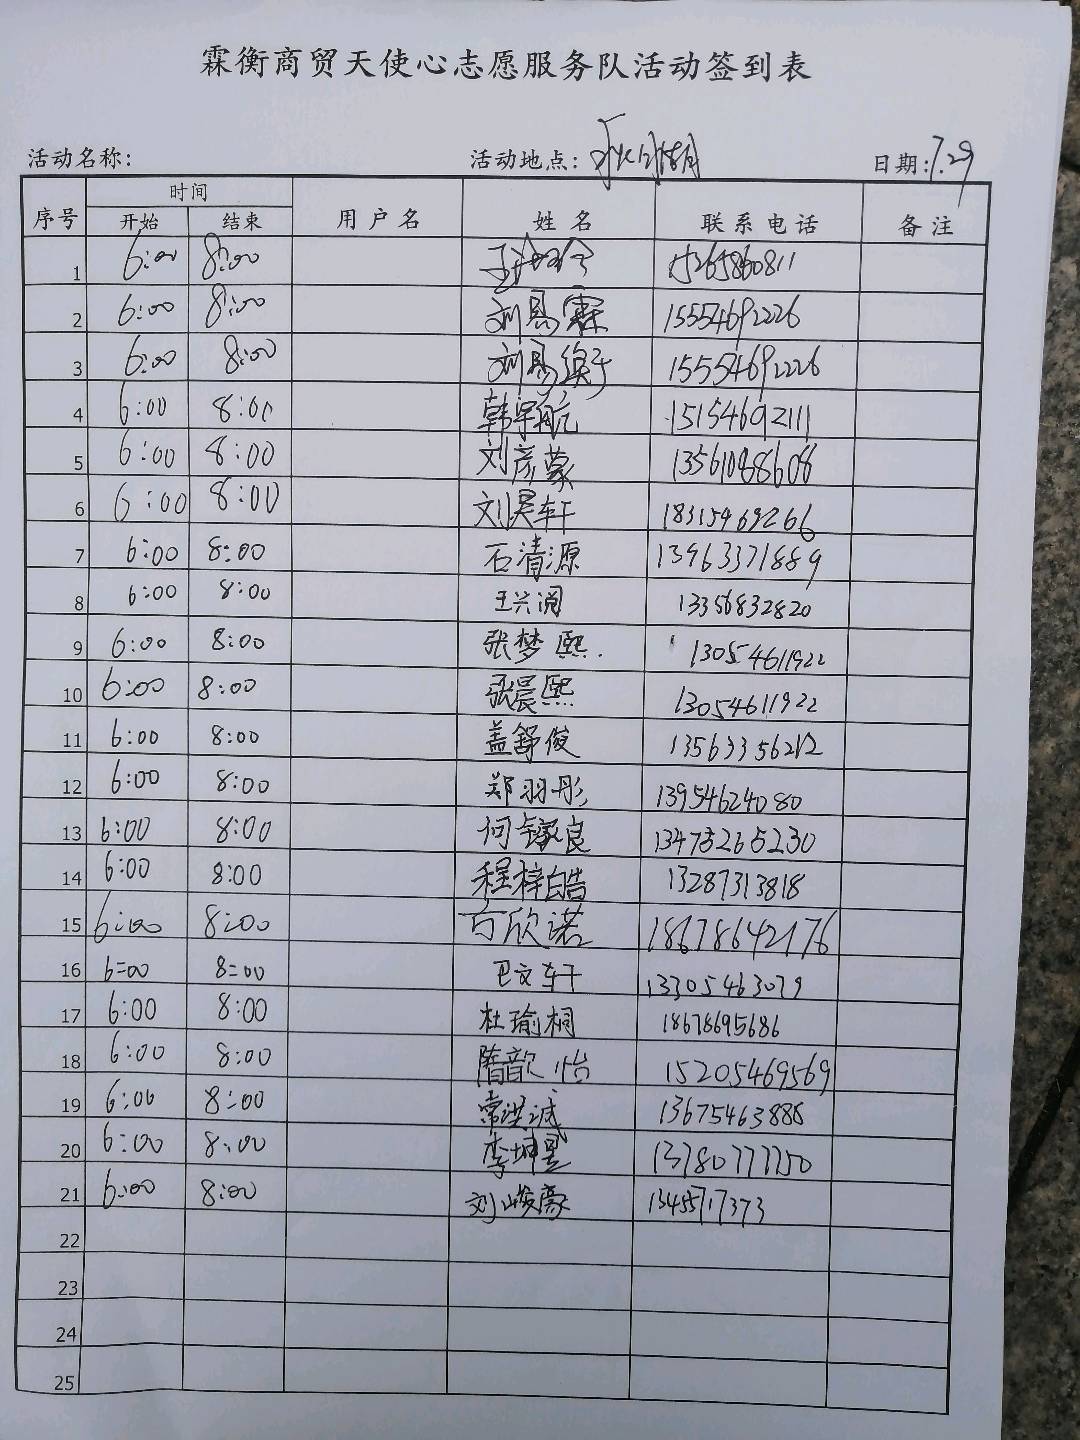 霖衡商贸天使心志愿服务队活动签到表
活动名称: 活动地点: 日期:7.29
序号 时间 用户名 姓名 联系电话 备注
开始 结束
1 6:00 8:00 15265860811
2 6:00 8:00 刘易霖 15554692226
3 6:00 8:00 刘易衡 15554692226
4 6:00 8:00 韩宇航 15154692111
5 6:00 8:00 刘彦蒙 13561088608
6 6:00 8:00 刘昊轩 18315469266
7 6:00 8:00 石清源 13963371889
8 6:00 8:00 王兴阔 13356832820
9 6:00 8:00 张梦熙. 13054611922
10 6:00 8:00 张晨熙 13054611922
11 6:00 8:00 盖舒俊 13563356212
12 6:00 8:00 郑羽彤 13954624080
13 6:00 8:00 何镓良 13475265230
14 6:00 8:00 程梓皓 13287313818
15 6:00 8:00 白欣诺 18678642176
16 6:00 8:00 巴文轩 13305463079
17 6:00 8:00 杜瑜桐 18678695686
18 6:00 8:00 隋歆怡 15205469569
19 6:00 8:00 常洪诚 13675463888
20 6:00 8:00 李坤昱 13780777750
21 6:00 8:00 刘峻豪 13455717373
22
23
24
25